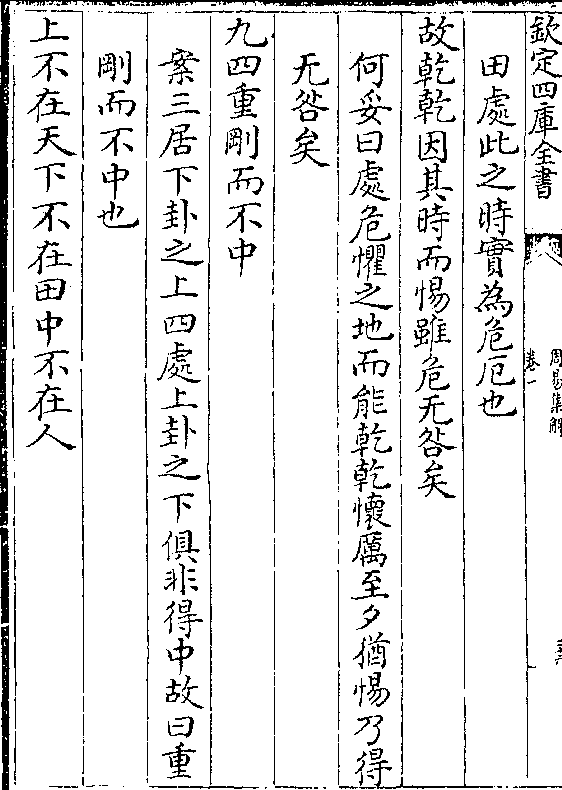 欽定四庫全書
周易集解
卷一
田處此之時實為危厄也
故乾乾因其時而惕雖危无咎矣
何妥曰處危懼之地而能乾乾懷厲至夕猶惕乃得
无咎矣
九四重剛而不中
案三居下卦之上四處上卦之下俱非得中故曰重
剛而不中也
上不在天下不在田中不在人